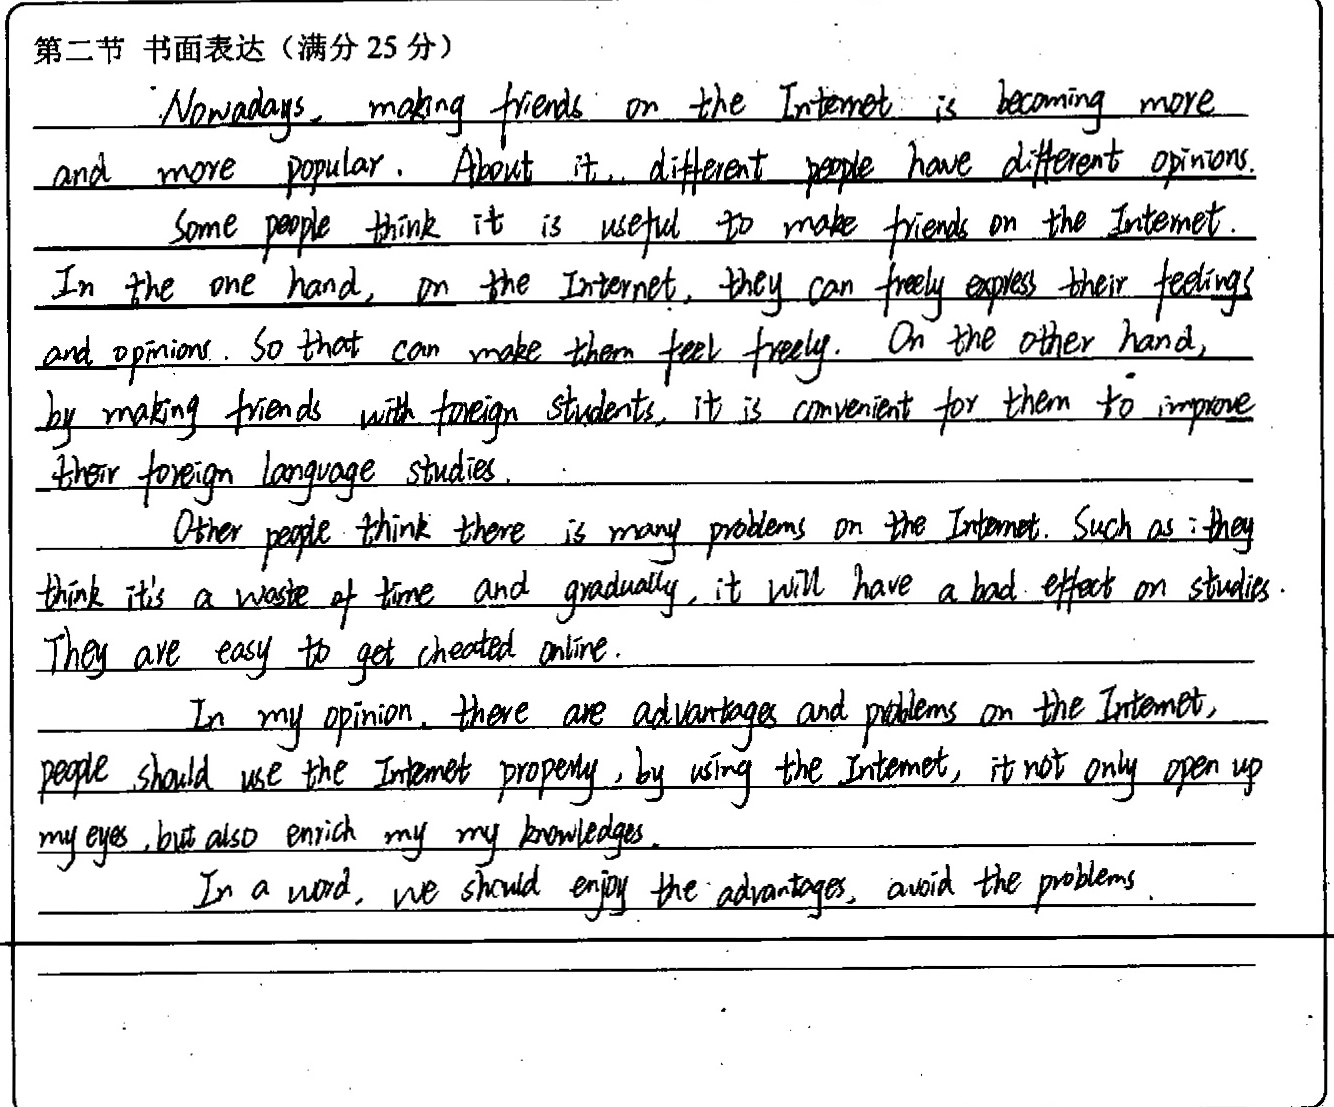 第二节 书面表达（满分 25 分）
Nowadays, making friends on the Internet is becoming more
and more popular. About it, different people have different opinions.
Some people think it is useful to make friends on the Internet.
In the one hand, on the Internet, they can freely express their feelings
and opinions. So that can make them feel freely. On the other hand,
by making friends with foreign students, it is convenient for them to improve
their foreign language studies.
Other people think there is many problems on the Internet. Such as : they
think it's a waste of time and gradually, it will have a bad effect on studies.
They are easy to get cheated online.
In my opinion, there are advantages and problems on the Internet,
people should use the Internet properly, by using the Internet, it not only open up
my eyes, but also enrich my my knowledges.
In a word, we should enjoy the advantages, avoid the problems.